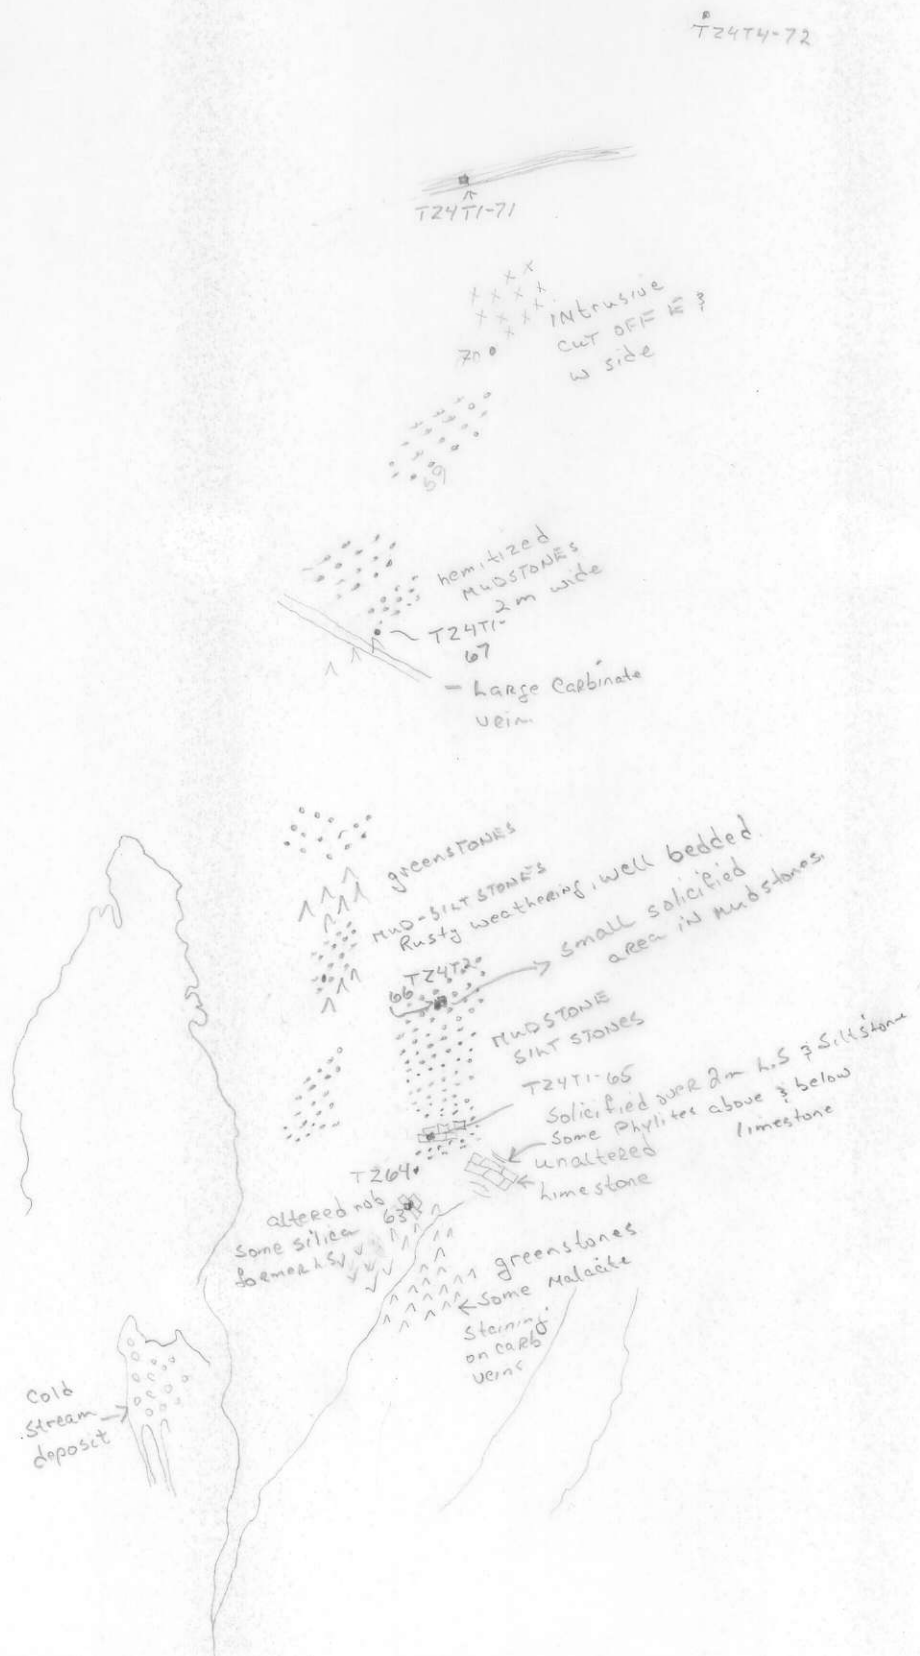 TZ4T4-72
TZ4T1-71
INtrusive
CUT OFF E &
W side
70
69
hemitized
MUDSTONES
2m wide
TZ4T1-
67
- Large Carbinate
vein.
greenSTONES
MUD-SILT STONES
Rusty weathering, well bedded.
small solicified
area in Mudstones.
TZ4T2
66
MUDSTONE
SILT STONES
TZ4T1-65
Solicified over 2m L.S & Siltstone
Some Phylites above & below
limestone
unaltered
Limestone
TZ64
altered
63
some silica
former LS
greenstones
Some Malacite
Staining
on carb
veins
Cold
Stream
deposit